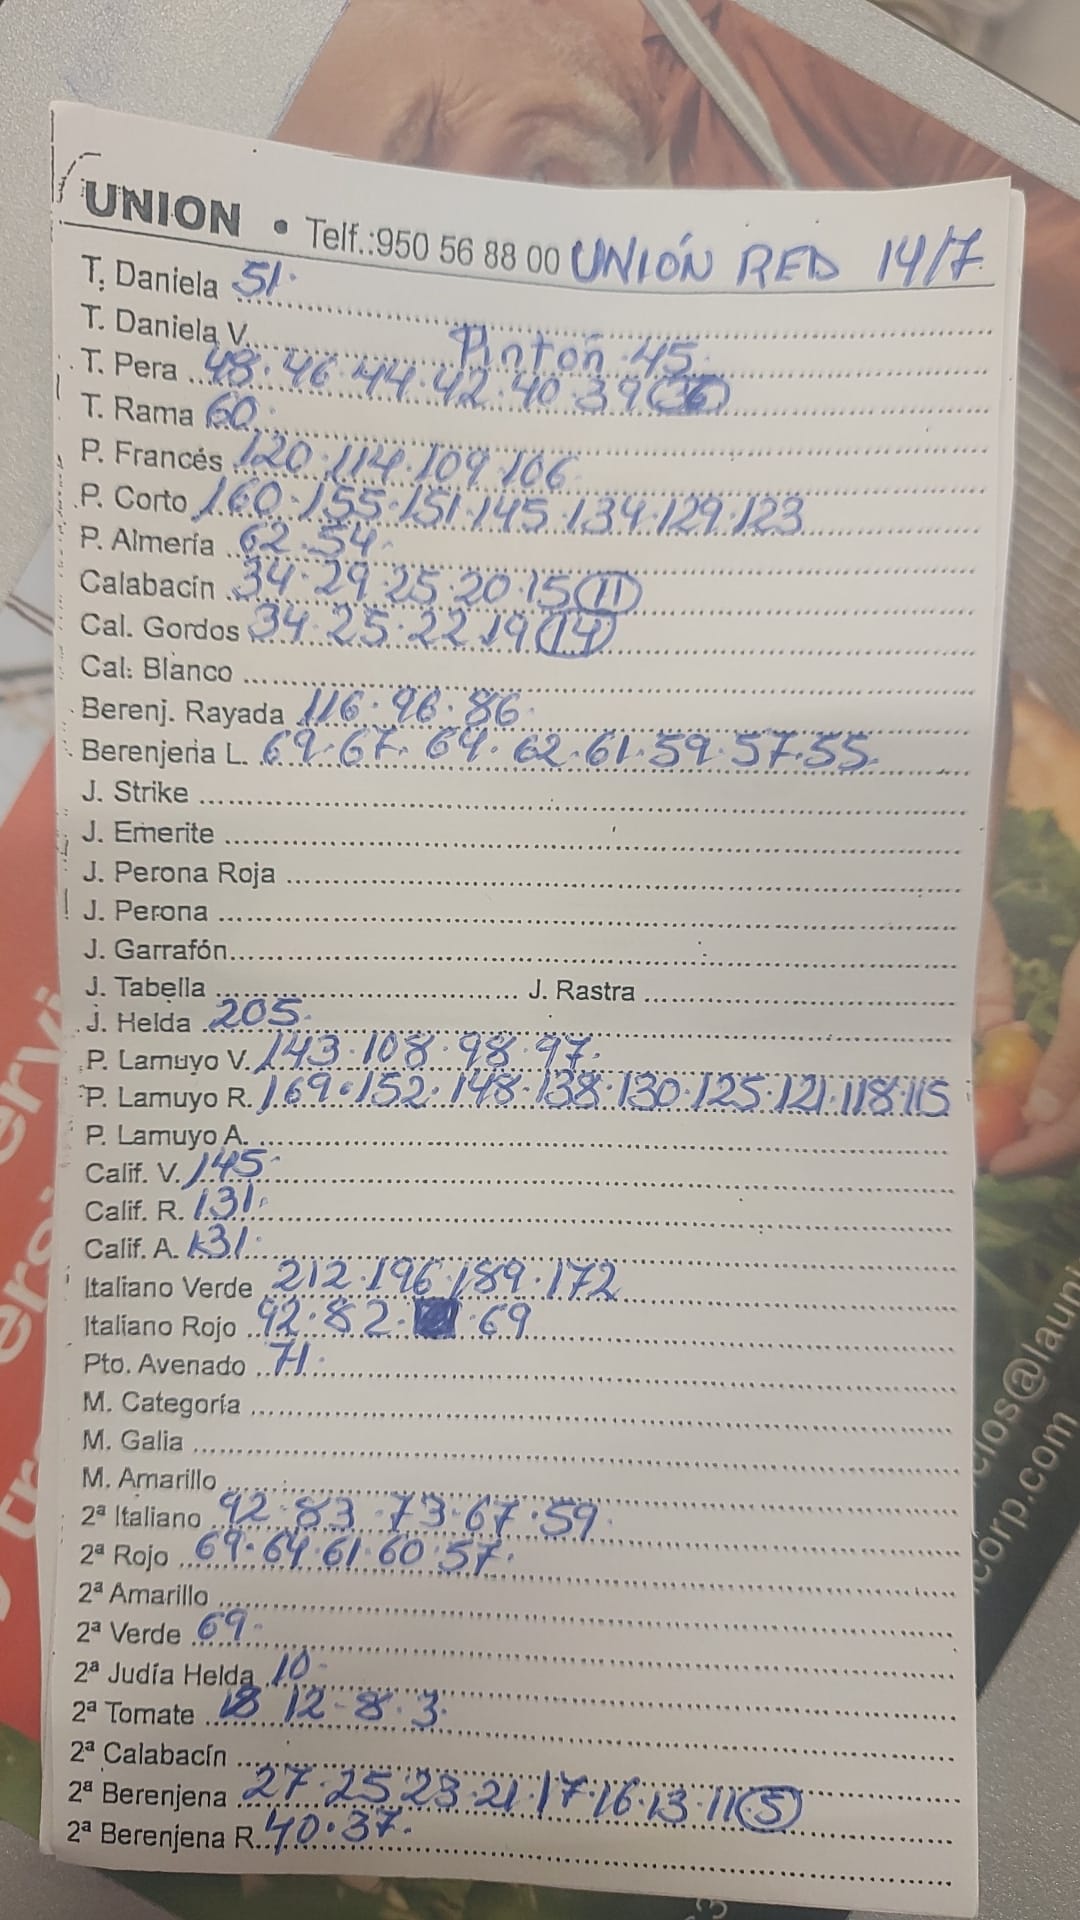 UNION • Telf.:950 56 88 00 UNIÓN RED 14/7
T. Daniela 51.
T. Daniela V. Pintón 45.
T. Pera 48.46.44.42.40.39 36
T. Rama 60.
P. Francés 120.114.109.106
P. Corto 160.155.151.145.134.129.123
P. Almería 62.54.
Calabacín 34.29.25.20.15 11
Cal. Gordos 34.25.22.19 14
Cal. Blanco
Berenj. Rayada 116.96.86.
Berenjena L. 69.67.64.62.61.59.57.55.
J. Strike
J. Emerite
J. Perona Roja
J. Perona
J. Garrafón
J. Tabella J. Rastra
J. Helda 205.
P. Lamuyo V. 143.108.98.97.
P. Lamuyo R. 169.152.148.138.130.125.121.118.115
P. Lamuyo A.
Calif. V. 145.
Calif. R. 131.
Calif. A. 131.
Italiano Verde 212.196.189.172
Italiano Rojo 92.82. .69
Pto. Avenado 71.
M. Categoría
M. Galia
M. Amarillo
2ª Italiano 92.83.73.67.59.
2ª Rojo 69.64.61.60.57.
2ª Amarillo
2ª Verde 69.
2ª Judía Helda 10-
2ª Tomate 18 12-8.3.
2ª Calabacín
2ª Berenjena 27.25 23.21.17.16.13.11 5
2ª Berenjena R. 40.37.
corp.com